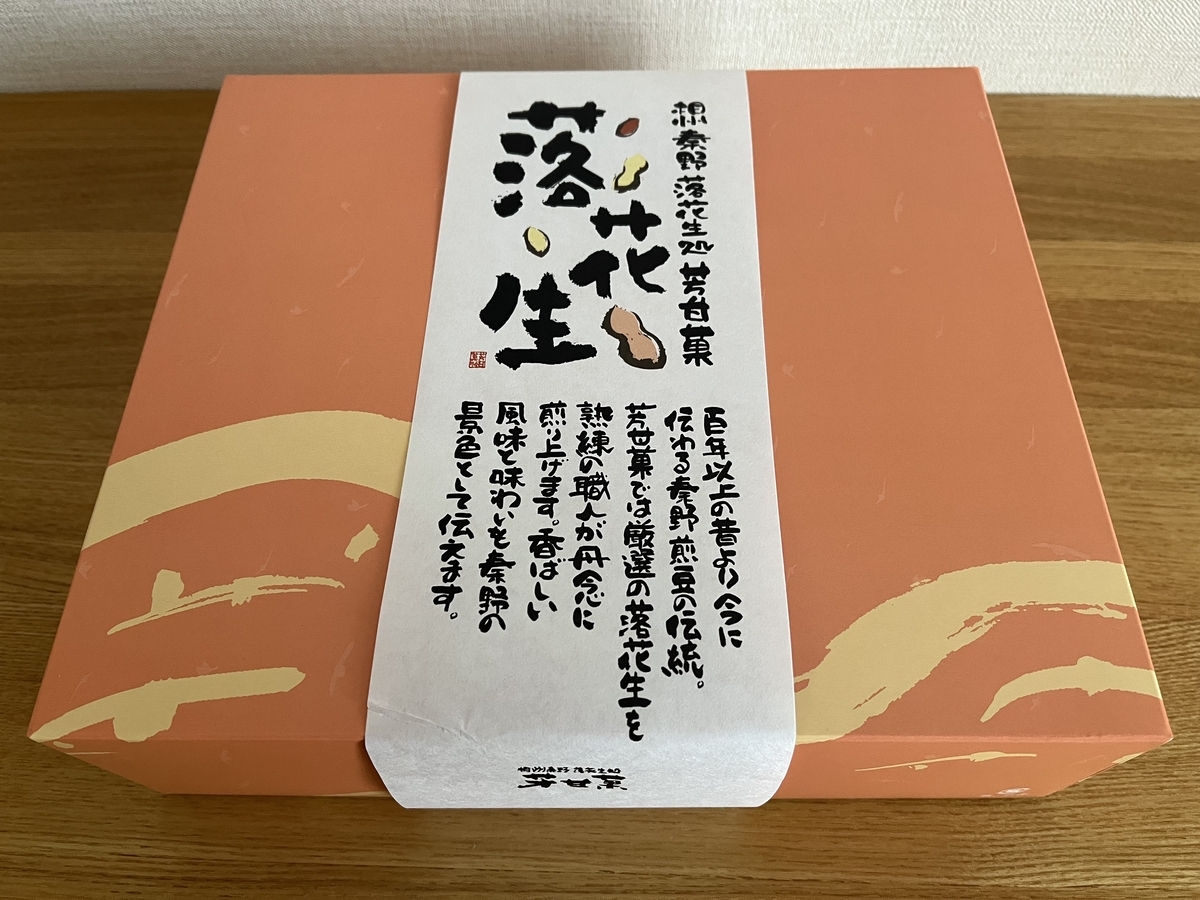 想 秦野 落花生処 芳甘菓
落花生
百年以上の昔より今に
伝わる秦野煎豆の伝統。
芳甘菓では厳選の落花生を
熟練の職人が丹念に
煎り上げます。香ばしい
風味と味わいを秦野の
景色として伝えます。
相州秦野 落花生処
芳甘菓